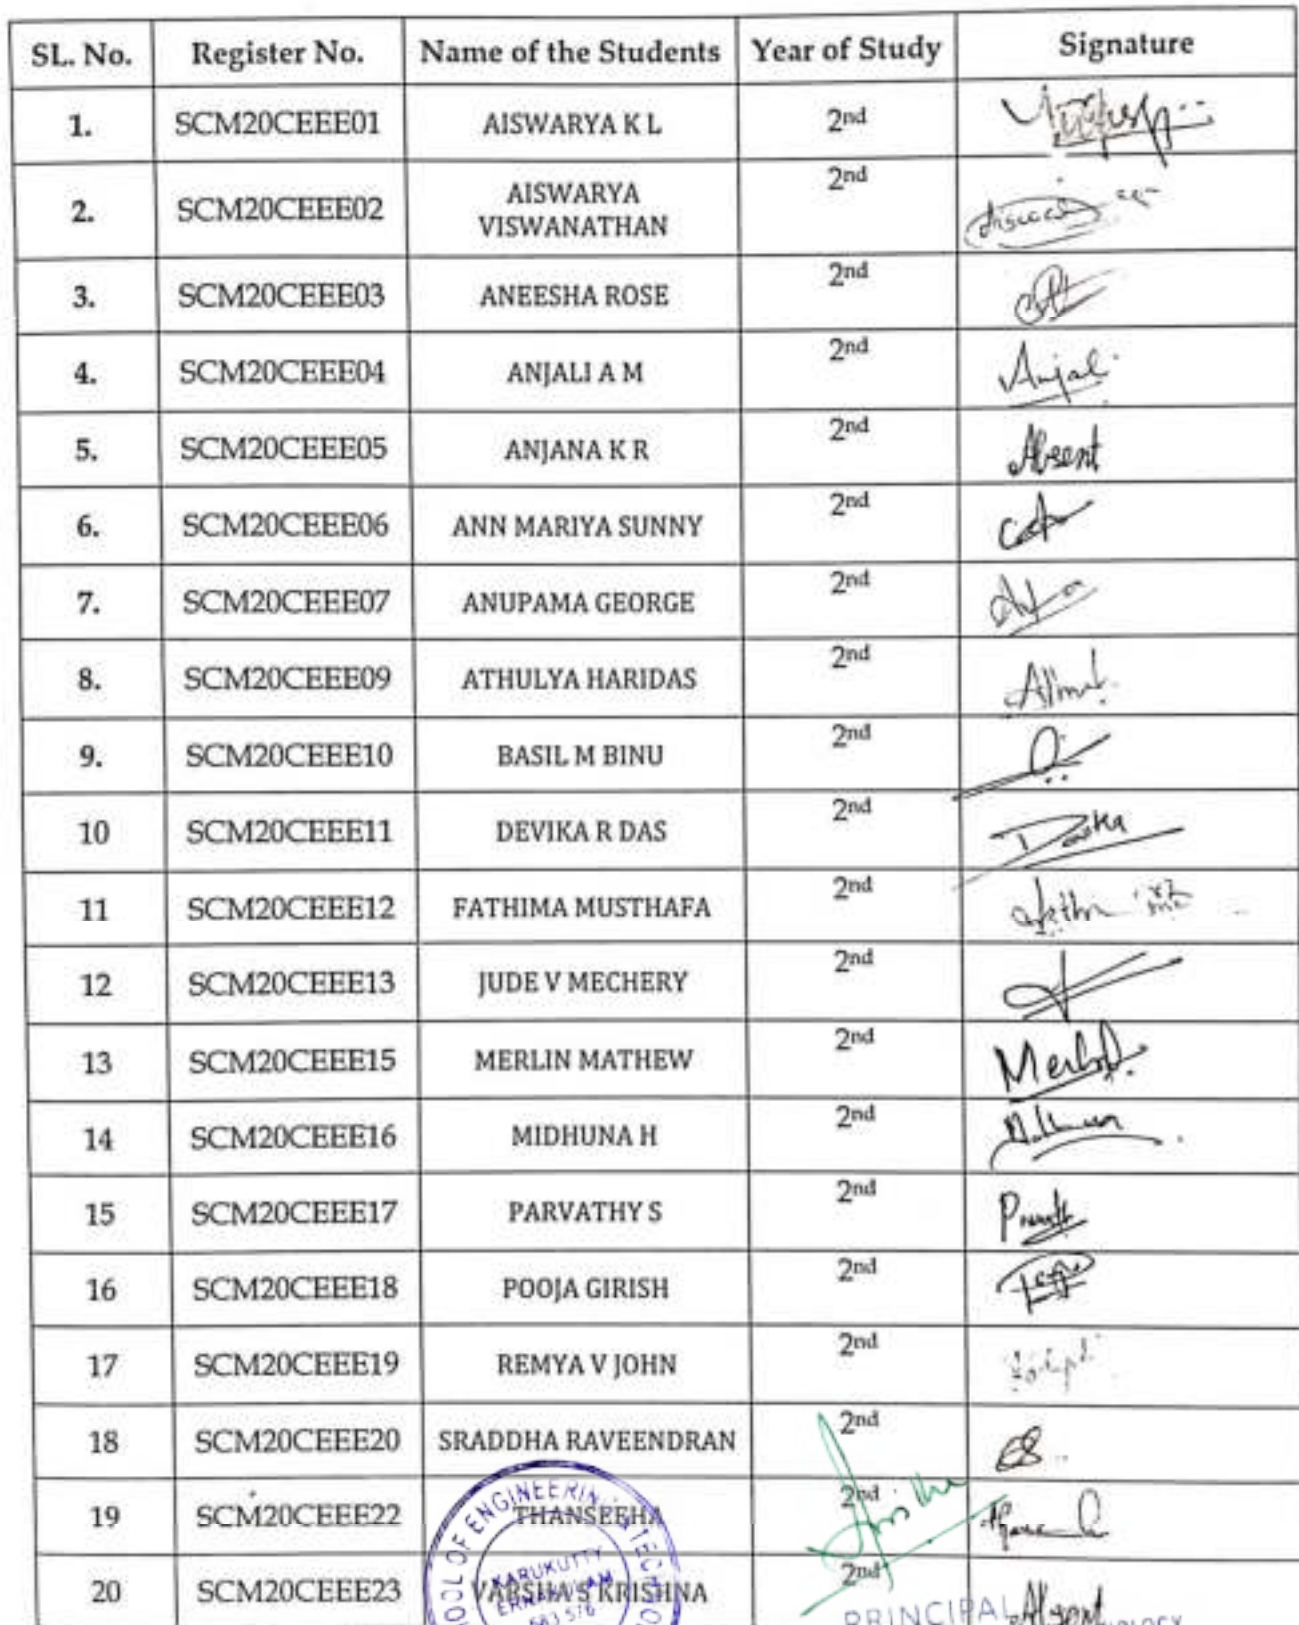 SL. No. Register No. Name of the Students Year of Study Signature
1. SCM20CEEE01 AISWARYA K L 2nd
2. SCM20CEEE02 AISWARYA VISWANATHAN 2nd
3. SCM20CEEE03 ANEESHA ROSE 2nd
4. SCM20CEEE04 ANJALI A M 2nd Anjali
5. SCM20CEEE05 ANJANA K R 2nd Absent
6. SCM20CEEE06 ANN MARIYA SUNNY 2nd
7. SCM20CEEE07 ANUPAMA GEORGE 2nd
8. SCM20CEEE09 ATHULYA HARIDAS 2nd
9. SCM20CEEE10 BASIL M BINU 2nd
10 SCM20CEEE11 DEVIKA R DAS 2nd
11 SCM20CEEE12 FATHIMA MUSTHAFA 2nd
12 SCM20CEEE13 JUDE V MECHERY 2nd
13 SCM20CEEE15 MERLIN MATHEW 2nd
14 SCM20CEEE16 MIDHUNA H 2nd
15 SCM20CEEE17 PARVATHY S 2nd
16 SCM20CEEE18 POOJA GIRISH 2nd
17 SCM20CEEE19 REMYA V JOHN 2nd
18 SCM20CEEE20 SRADDHA RAVEENDRAN 2nd
19 SCM20CEEE22 THANSEEHA 2nd
20 SCM20CEEE23 VARSHA S KRISHNA 2nd Absent
OF ENGINEERING &
KARUKUTTY
ERNAKULAM
683 576
PRINCIPAL